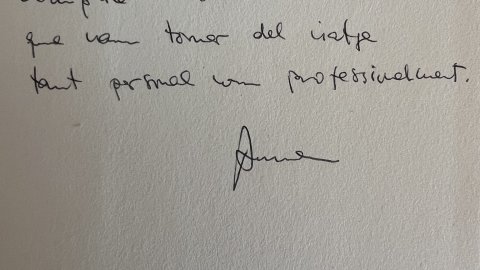 que vam tornar del viatge
tant personal com professionalment.
Anna